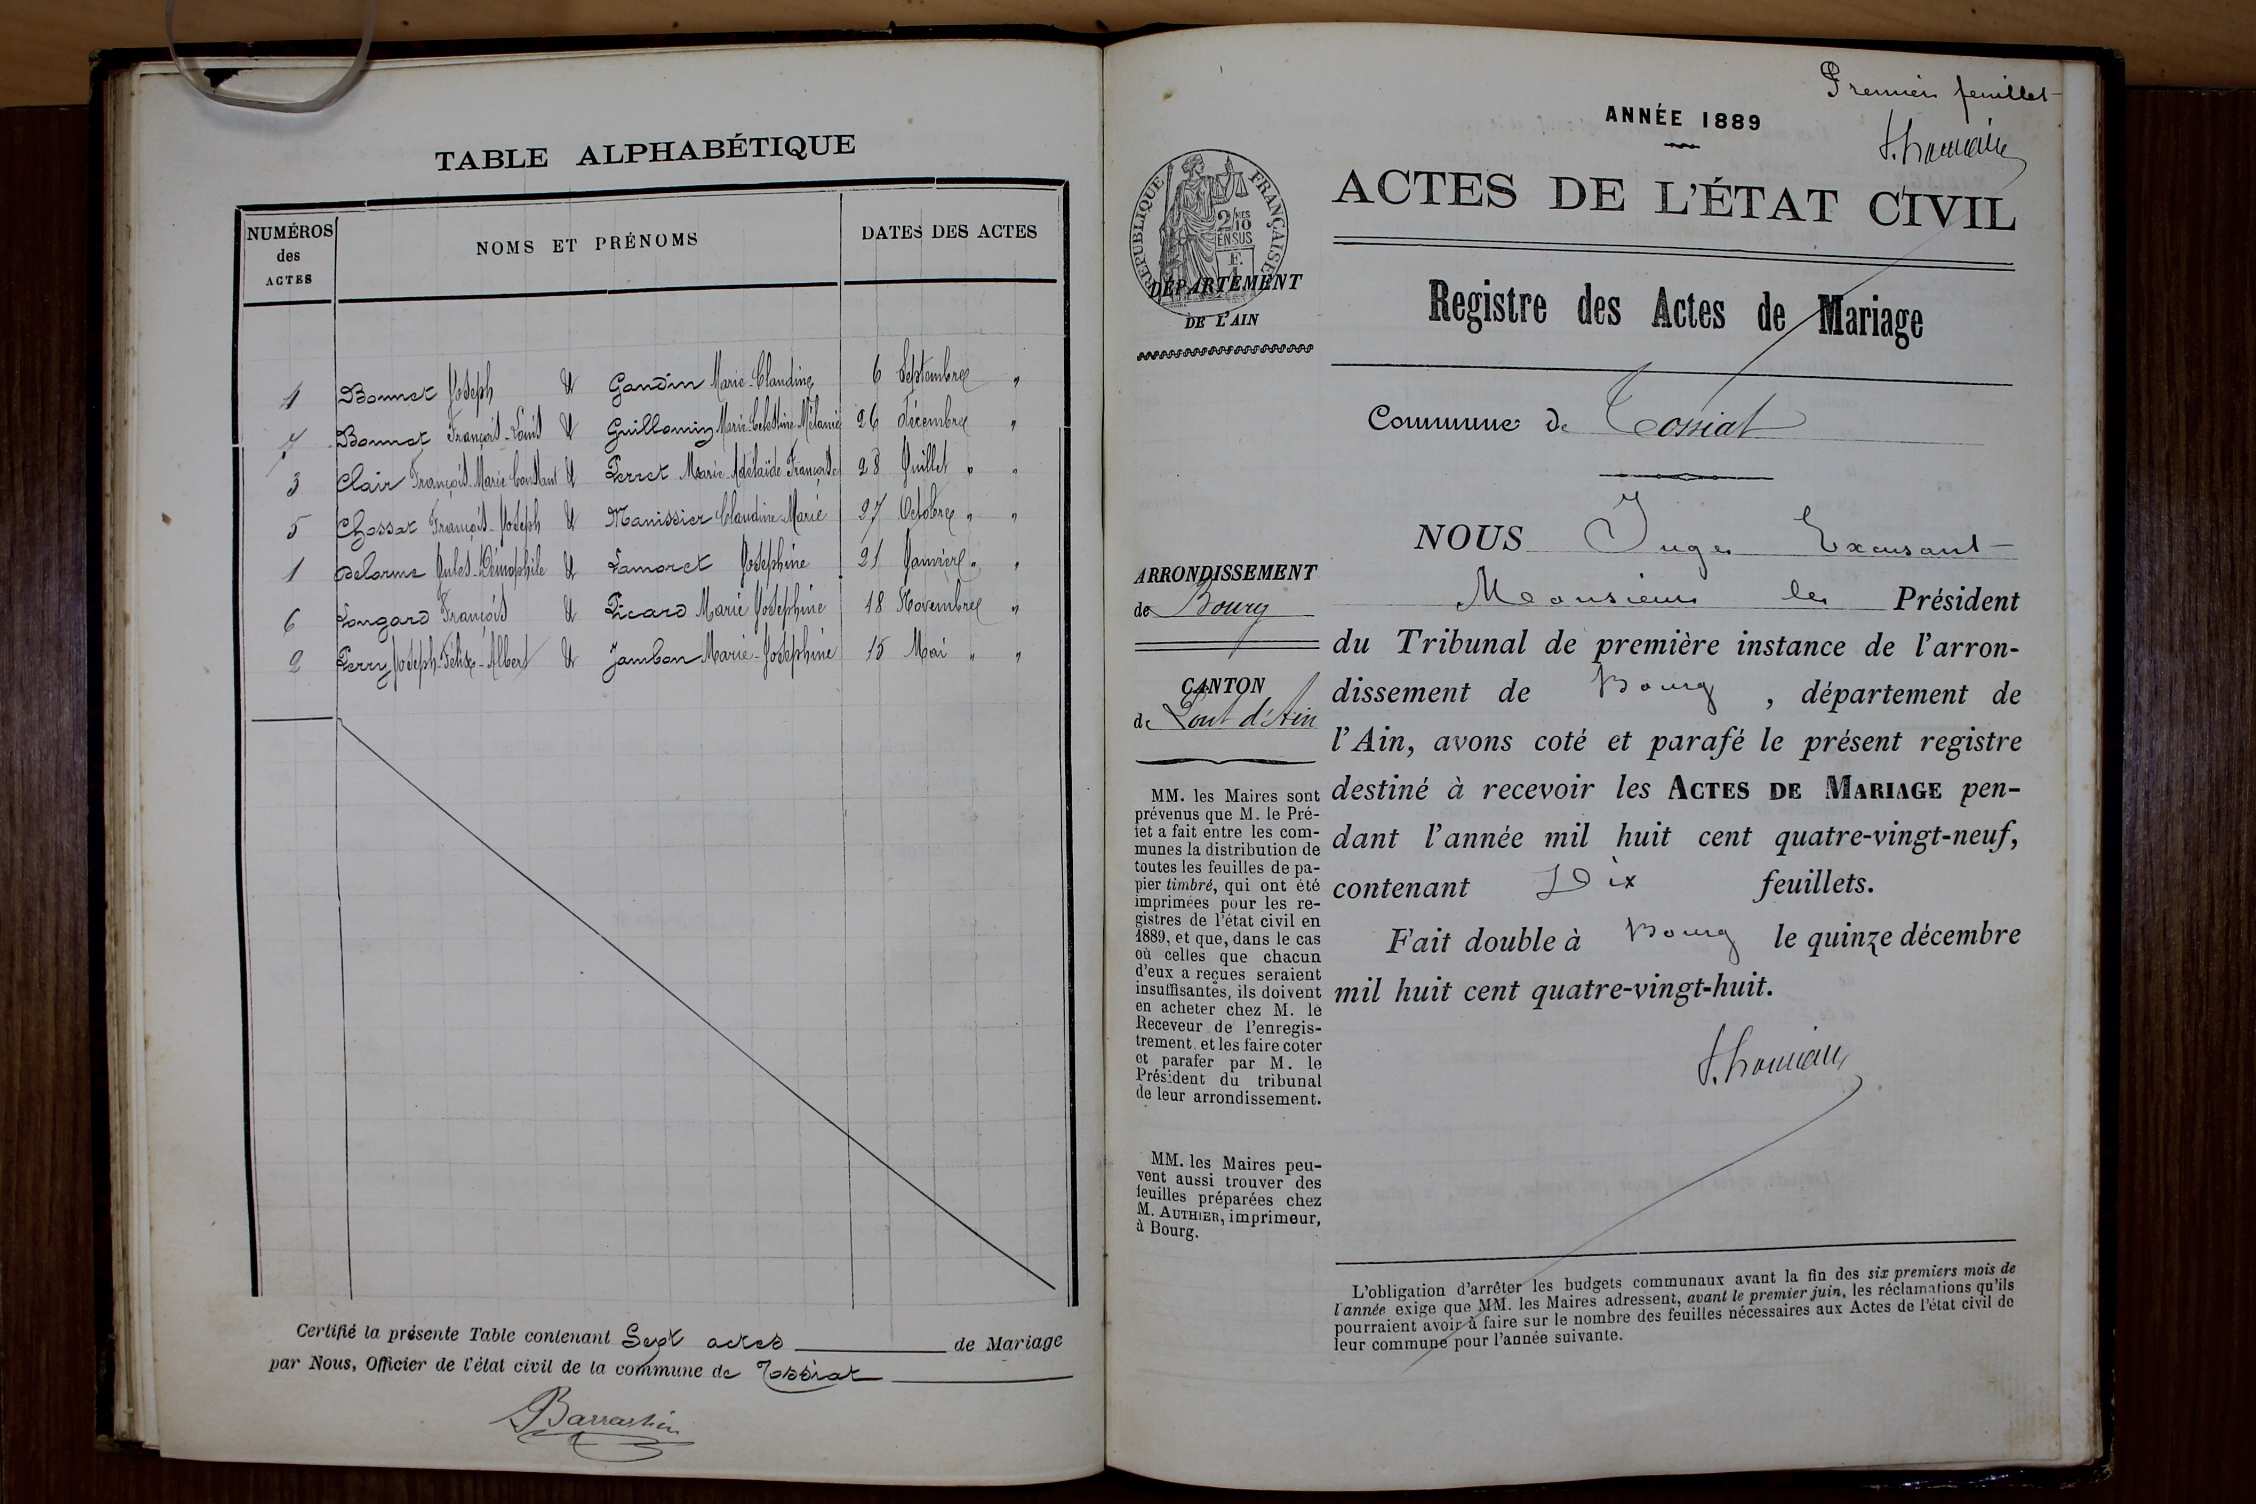 TABLE ALPHABÉTIQUE
NUMÉROS
des
ACTES
NOMS ET PRÉNOMS
DATES DES ACTES
4 Bonnet Joseph & Gandin Marie-Claudine 6 Septembre "
7 Bonnet François-Louis & Guillomin Marie-Celestine-Mélanie 26 Décembre "
3 Clair François-Marie Constant & Perret Marie-Adélaïde Françoise 28 Juillet " "
5 Chossat François-Joseph & Manissier Claudine-Marie 27 Octobre " "
1 Delorme Jules-Démophile & Lamoret Joséphine 21 Janvier " "
6 Longard François & Picard Marie Joséphine 18 Novembre "
2 Perry Joseph-Félix-Albert & Jambon Marie-Joséphine 15 Mai " "
Certifié la présente Table contenant Sept actes de Mariage
par Nous, Officier de l'état civil de la commune de Tossiat
Premier feuillet
ANNÉE 1889
ACTES DE L'ÉTAT CIVIL
RÉPUBLIQUE FRANÇAISE
2/10 MES
EN SUS
DÉPARTEMENT
DE L'AIN
Registre des Actes de Mariage
Commune de Tossiat
ARRONDISSEMENT
de Bourg
CANTON
de Pont d'Ain
MM. les Maires sont
prévenus que M. le Pré-
fet a fait entre les com-
munes la distribution de
toutes les feuilles de pa-
pier timbré, qui ont été
imprimées pour les re-
gistres de l'état civil en
1889, et que, dans le cas
où celles que chacun
d'eux a reçues seraient
insuffisantes, ils doivent
en acheter chez M. le
Receveur de l'enregis-
trement et les faire coter
et parafer par M. le
Président du tribunal
de leur arrondissement.
MM. les Maires peu-
vent aussi trouver des
feuilles préparées chez
M. AUTHIER, imprimeur,
à Bourg.
NOUS Juge Excusant
Monsieur le Président
du Tribunal de première instance de l'arron-
dissement de Bourg, département de
l'Ain, avons coté et parafé le présent registre
destiné à recevoir les ACTES DE MARIAGE pen-
dant l'année mil huit cent quatre-vingt-neuf,
contenant Dix feuillets.
Fait double à Bourg le quinze décembre
mil huit cent quatre-vingt-huit.
L'obligation d'arrêter les budgets communaux avant la fin des six premiers mois de
l'année exige que MM. les Maires adressent, avant le premier juin, les réclamations qu'ils
pourraient avoir à faire sur le nombre des feuilles nécessaires aux Actes de l'état civil de
leur commune pour l'année suivante.